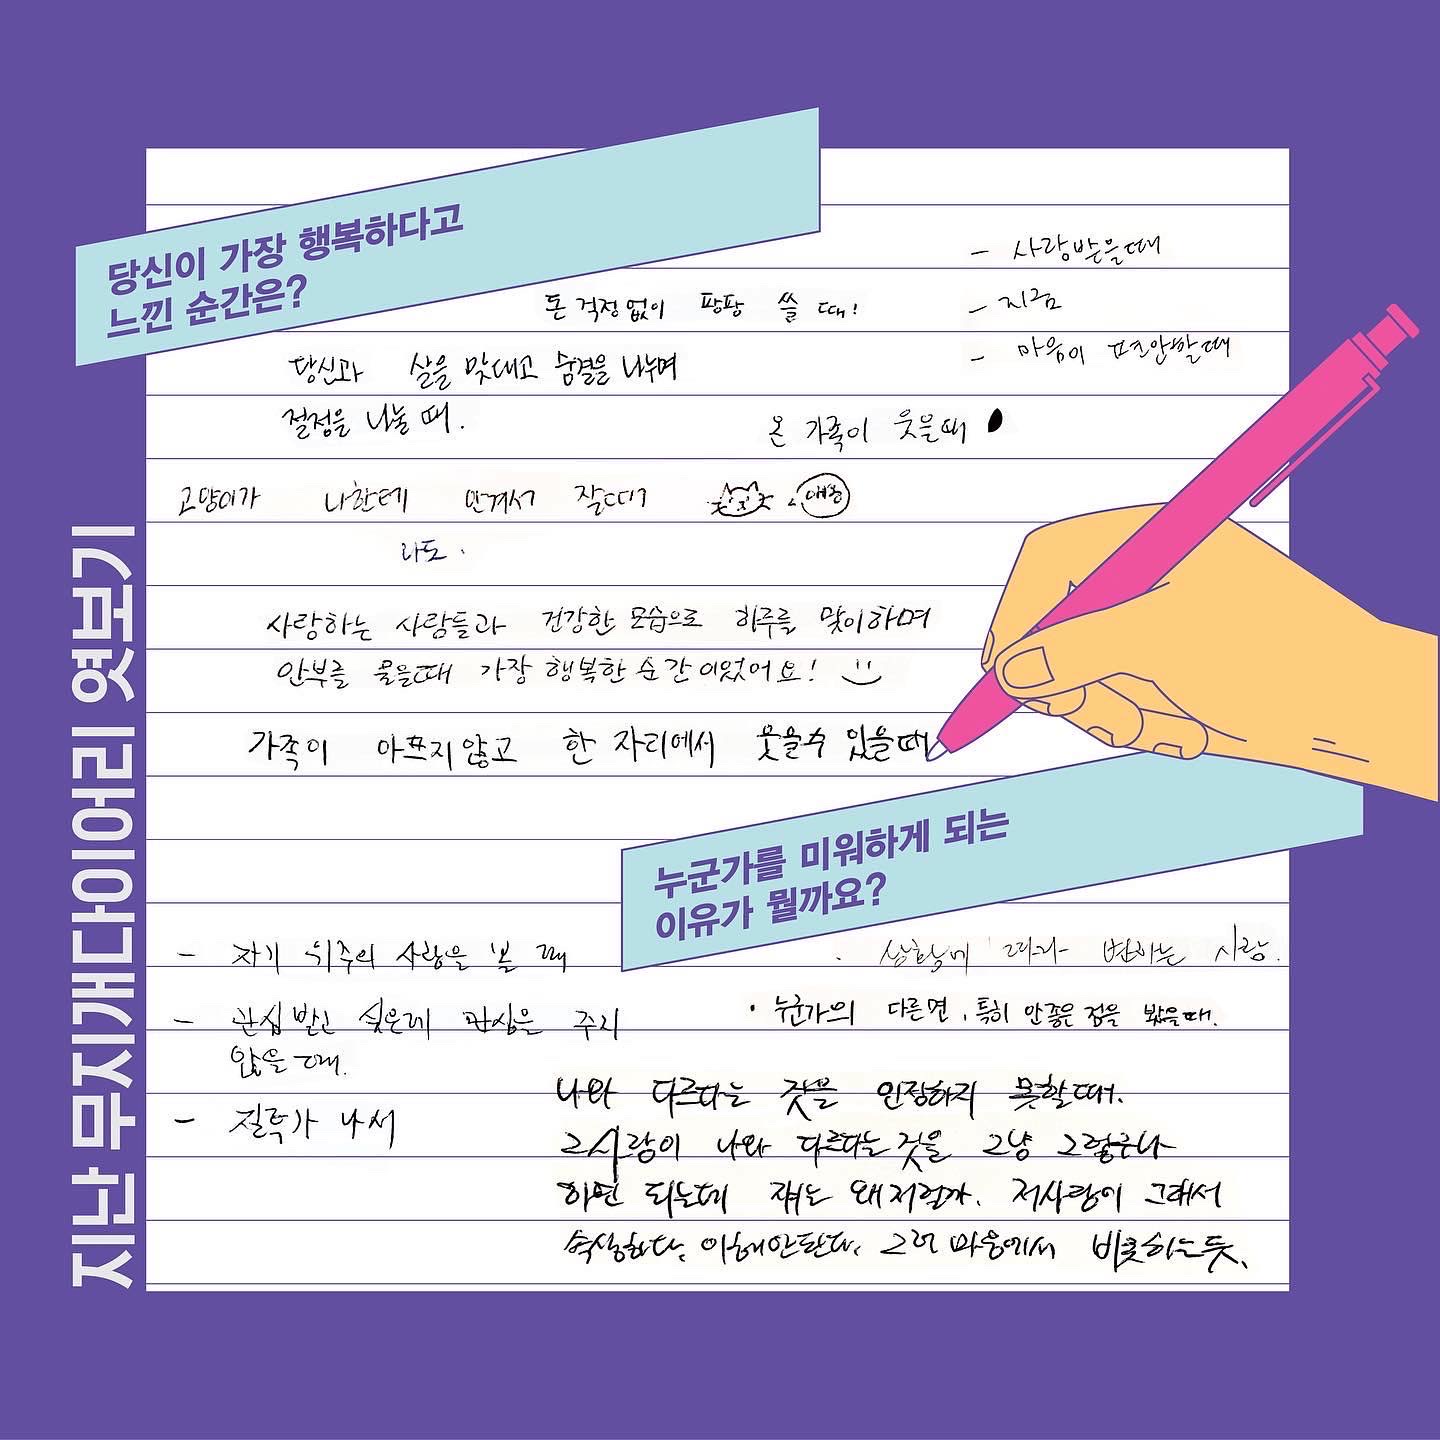 지난 무지개다이어리 엿보기
당신이 가장 행복하다고
느낀 순간은?
- 사랑받을때
- 지금
- 마음이 편안할때
돈 걱정없이 팡팡 쓸 때!
당신과 살을 맞대고 숨결을 나누며
절정을 나눌 때.
온 가족이 웃을때
고양이가 나한테 안겨서 잘때
애옹
나도.
사랑하는 사람들과 건강한 모습으로 하루를 맞이하며
안부를 물을때 가장 행복한 순간이었어요!
가족이 아프지않고 한 자리에서 웃을수 있을때
누군가를 미워하게 되는
이유가 뭘까요?
- 자기 위주의 사람을 볼 때
- 관심받고 싶은데 관심을 주지
않을 때.
- 질투가 나서
· 상황에 따라 변하는 사람.
· 누군가의 다른면, 특히 안좋은 점을 봤을때.
나와 다르다는 것을 인정하지 못할때.
그사람이 나와 다르다는것을 그냥 그렇구나
하면 되는데 쟤는 왜저럴까. 저사람이 그래서
속상하다, 이해안된다, 그런 마음에서 비롯하는듯.